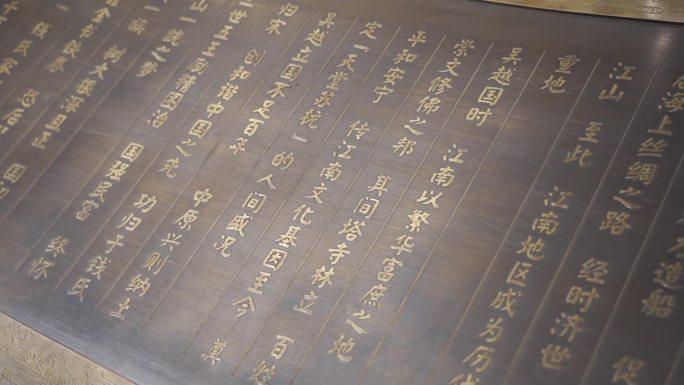 造船 促
海上丝绸之路 经时济世
江山 至此 江南地区成为历
重地
吴越国时 江南以繁华富庶之地
崇文修佛之邦 其间塔寺林立 百姓
平和安宁 传江南文化基因至今 奠
定一天堂办杭」的人间盛况
吴越立国不足百年 中原兴则纳土
归宋 创和谐中国之先 功归于钱氏
世五王励精图治 国强民富 终怀
山一统之梦
树大根深且正
钱氏家